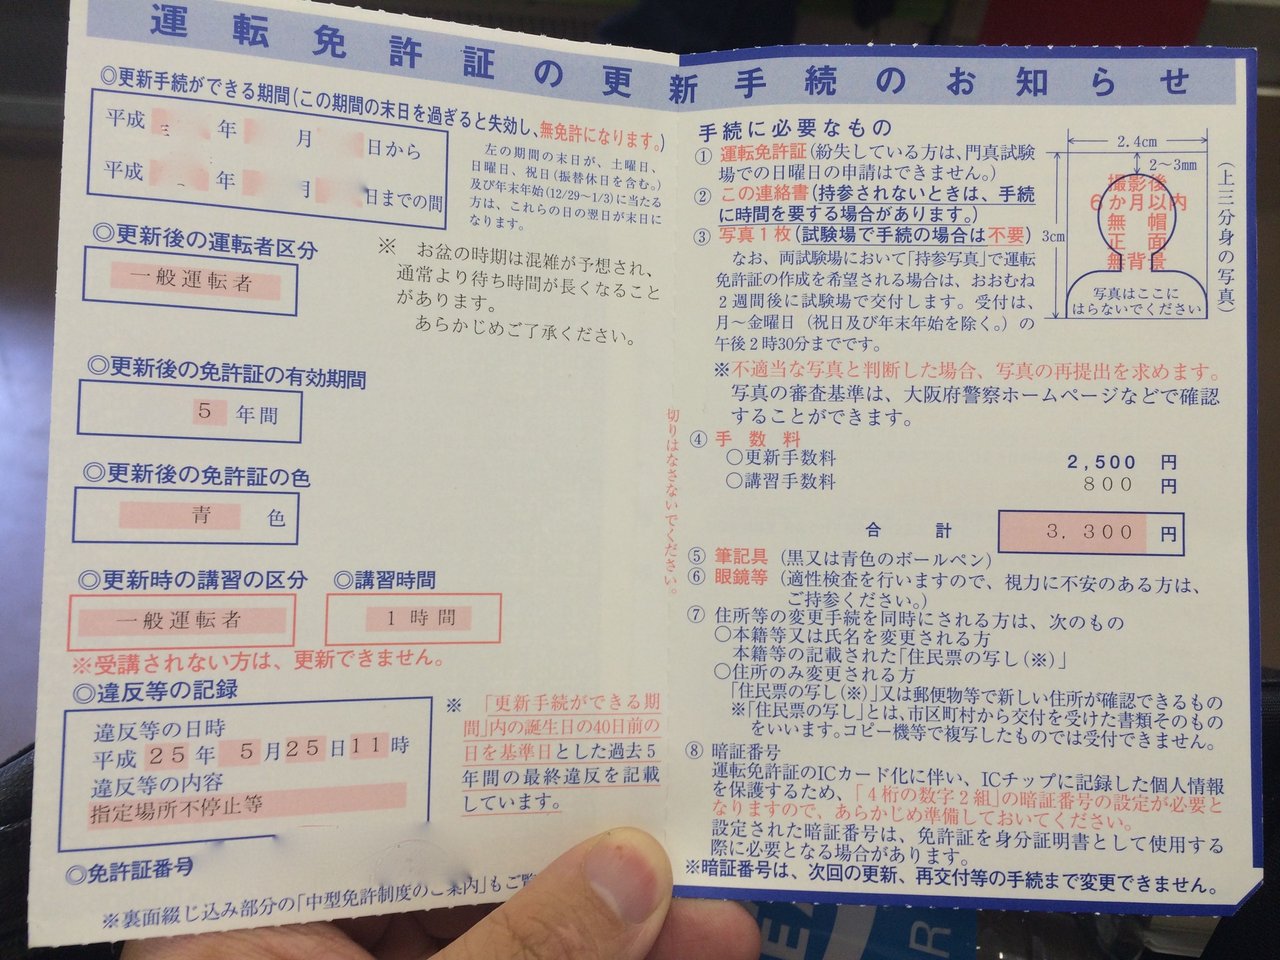 運転免許証の更新手続のお知らせ
◎更新手続ができる期間(この期間の末日を過ぎると失効し、無免許になります。)
平成 年 月 日から
平成 年 月 日までの間
左の期間の末日が、土曜日、
日曜日、祝日(振替休日を含む。)
及び年末年始(12/29～1/3)に当たる
方は、これらの日の翌日が末日に
なります。
◎更新後の運転者区分
一般運転者
※ お盆の時期は混雑が予想され、
通常より待ち時間が長くなること
があります。
あらかじめご了承ください。
◎更新後の免許証の有効期間
5 年間
◎更新後の免許証の色
青 色
◎更新時の講習の区分
一般運転者
◎講習時間
1時間
※受講されない方は、更新できません。
◎違反等の記録
違反等の日時
平成25年5月25日11時
違反等の内容
指定場所不停止等
※「更新手続ができる期
間」内の誕生日の40日前の
日を基準日とした過去5
年間の最終違反を記載
しています。
◎免許証番号
※裏面綴じ込み部分の「中型免許制度のご案内」もご
切りはなさないでください。
手続に必要なもの
① 運転免許証(紛失している方は、門真試験
場での日曜日の申請はできません。)
② この連絡書(持参されないときは、手続
に時間を要する場合があります。)
③ 写真1枚(試験場で手続の場合は不要)
なお、両試験場において「持参写真」で運転
免許証の作成を希望される場合は、おおむね
2週間後に試験場で交付します。受付は、
月～金曜日(祝日及び年末年始を除く。)の
午後2時30分までです。
2.4cm
2～3mm
3cm
撮影後
6か月以内
無帽
正面
無背景
写真はここに
はらないでください
(上三分身の写真)
※不適当な写真と判断した場合、写真の再提出を求めます。
写真の審査基準は、大阪府警察ホームページなどで確認
することができます。
④ 手数料
○更新手数料 2,500 円
○講習手数料 800 円
合計 3,300 円
⑤ 筆記具 (黒又は青色のボールペン)
⑥ 眼鏡等 (適性検査を行いますので、視力に不安のある方は、
ご持参ください。)
⑦ 住所等の変更手続を同時にされる方は、次のもの
○本籍等又は氏名を変更される方
本籍等の記載された「住民票の写し(※)」
○住所のみ変更される方
「住民票の写し(※)」又は郵便物等で新しい住所が確認できるもの
※「住民票の写し」とは、市区町村から交付を受けた書類そのもの
をいいます。コピー機等で複写したものでは受付できません。
⑧ 暗証番号
運転免許証のICカード化に伴い、ICチップに記録した個人情報
を保護するため、「4桁の数字2組」の暗証番号の設定が必要と
なりますので、あらかじめ準備しておいてください。
設定された暗証番号は、免許証を身分証明書として使用する
際に必要となる場合があります。
※暗証番号は、次回の更新、再交付等の手続まで変更できません。